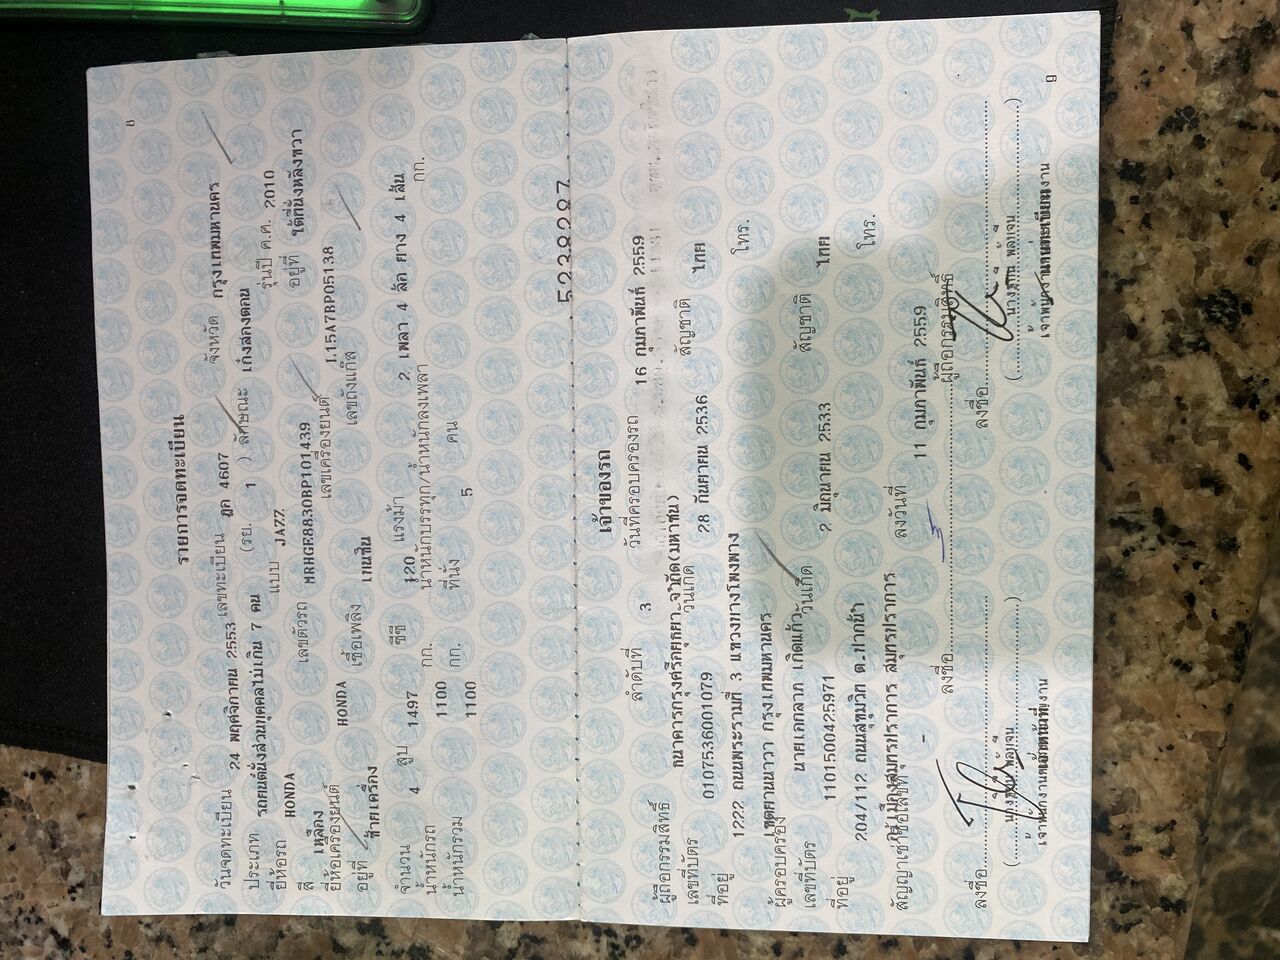 8
รายการจดทะเบียน
วันจดทะเบียน 24 พฤศจิกายน 2553 เลขทะเบียน 4607 จังหวัด กรุงเทพมหานคร
ประเภท รถยนต์นั่งส่วนบุคคลไม่เกิน 7 คน (รย. 1 ) ลักษณะ เก๋งสองตอน
ยี่ห้อรถ HONDA แบบ JAZZ รุ่นปี ค.ศ. 2010
สี เหลือง เลขตัวรถ MRHGE8830BP101439 อยู่ที่ ใต้ที่นั่งหลังขวา
ยี่ห้อเครื่องยนต์ HONDA เลขเครื่องยนต์ L15A7BP05138
อยู่ที่ ท้ายเครื่อง เชื้อเพลิง เบนซิน เลขถังแก๊ส
จำนวน 4 สูบ 1497 ซีซี 120 แรงม้า 2 เพลา 4 ล้อ ยาง 4 เส้น
น้ำหนักรถ 1100 กก. น้ำหนักบรรทุก/น้ำหนักลงเพลา กก.
น้ำหนักรวม 1100 กก. ที่นั่ง 5 คน
5238287
เจ้าของรถ
ลำดับที่ 3 วันที่ครอบครองรถ 16 กุมภาพันธ์ 2559
ผู้ถือกรรมสิทธิ์ ธนาคารกรุงศรีอยุธยา จำกัด(มหาชน)
เลขที่บัตร 0107536001079 วันเกิด 28 กันยายน 2536 สัญชาติ ไทย
ที่อยู่ 1222 ถนนพระรามที่ 3 แขวงบางโพงพาง โทร.
เขตยานนาวา กรุงเทพมหานคร
ผู้ครอบครอง นายเอกลาภ เกิดแก้ว
เลขที่บัตร 1101500425971 วันเกิด 2 มิถุนายน 2533 สัญชาติ ไทย
ที่อยู่ 204/112 ถนนสุขุมวิท ต.ปากน้ำ โทร.
อ.เมืองสมุทรปราการ สมุทรปราการ
สัญญาเช่าซื้อเลขที่ - ลงวันที่ 11 กุมภาพันธ์ 2559
ลงชื่อ ผู้ถือกรรมสิทธิ์
ลงชื่อ ลงชื่อ
9